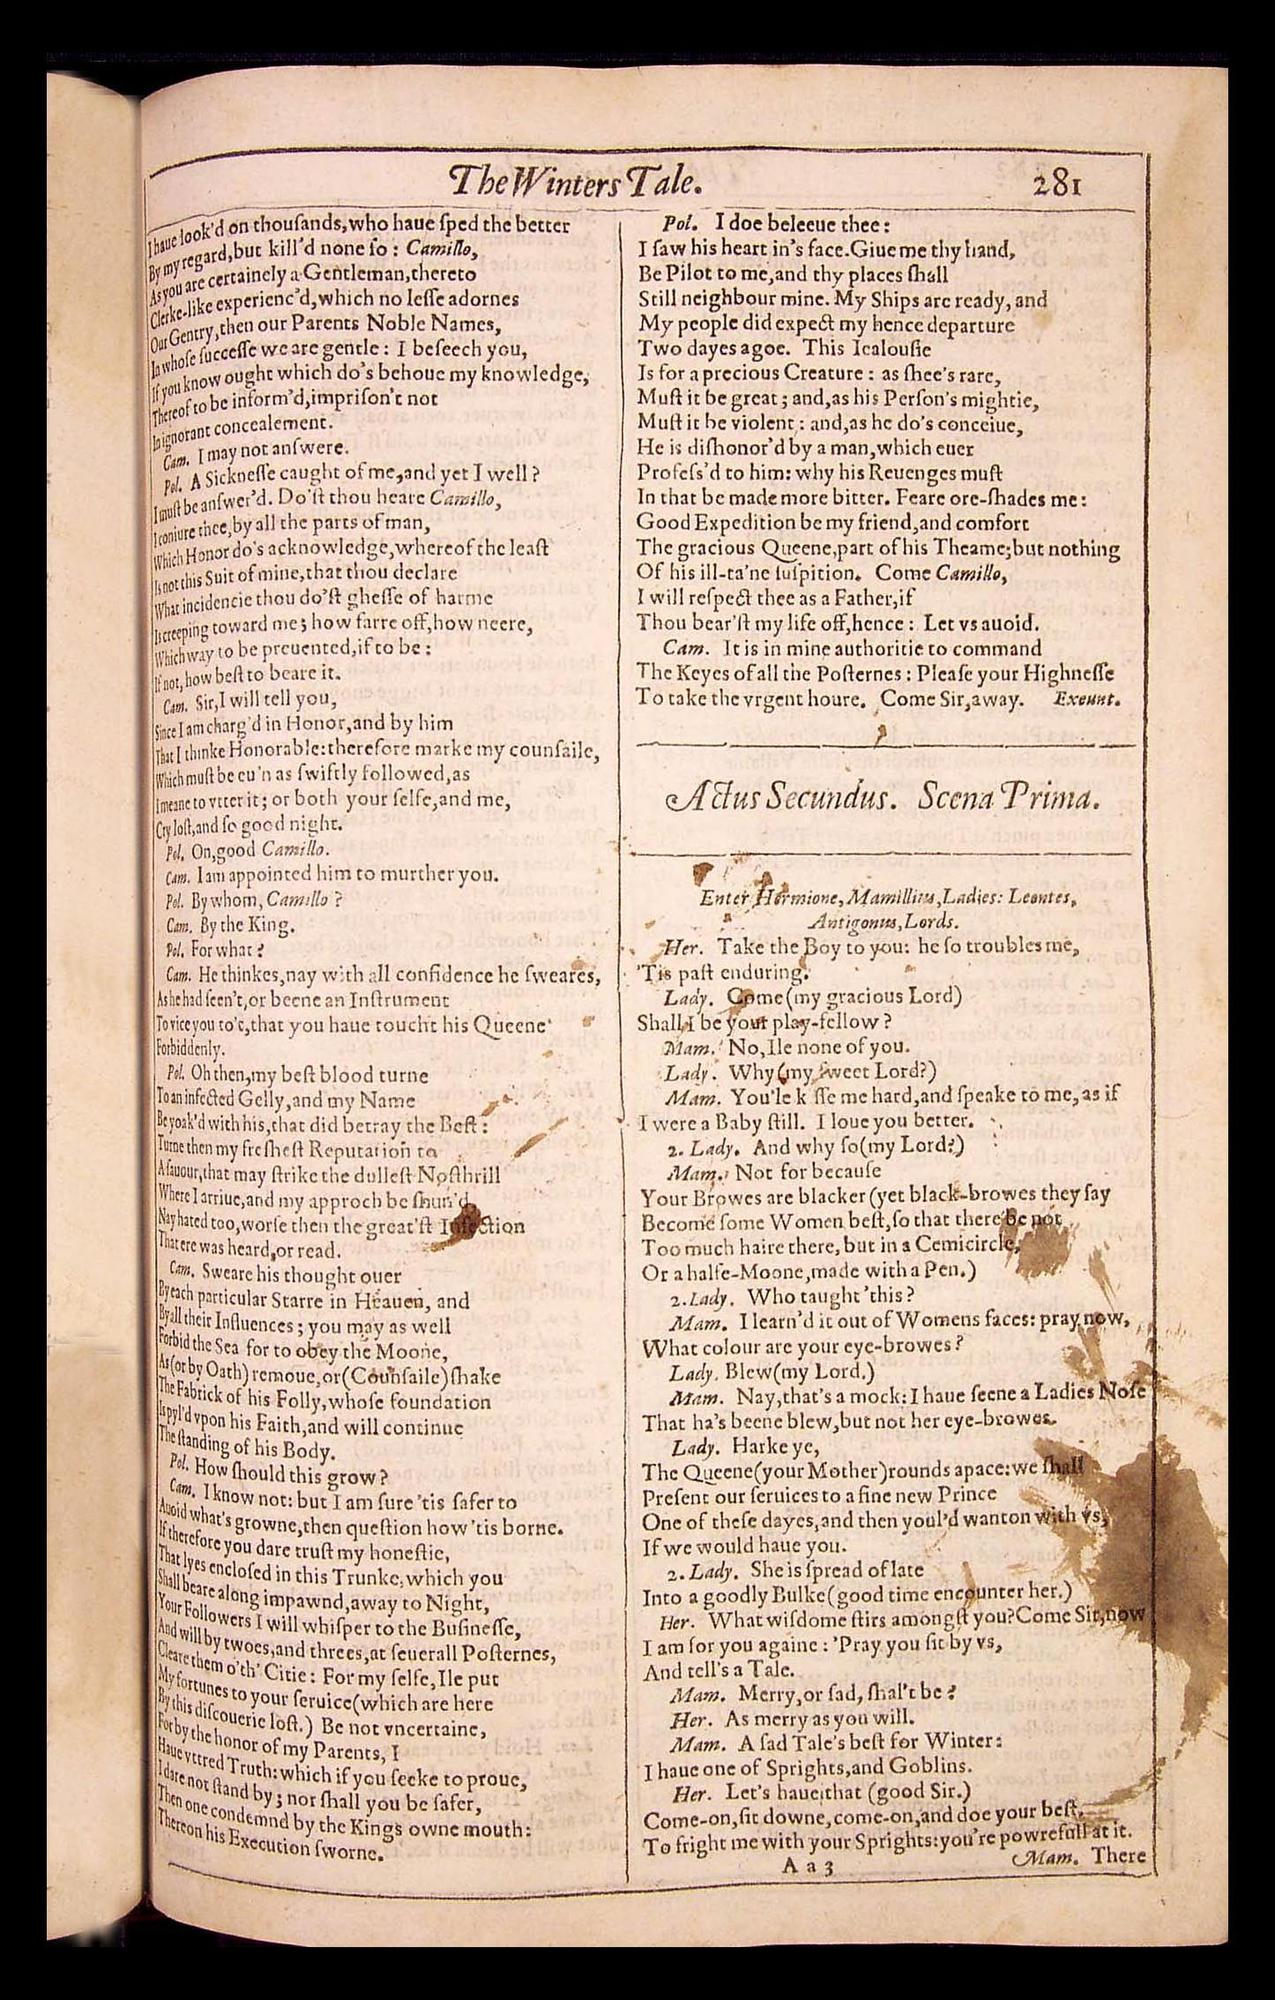 The Winters Tale.
281
I haue look'd on thouſands, who haue ſped the better
By my regard, but kill'd none ſo: Camillo,
As you are certainely a Gentleman, thereto
Clerke-like experienc'd, which no leſſe adornes
Our Gentry, then our Parents Noble Names,
In whoſe ſucceſſe we are gentle: I beſeech you,
If you know ought which do's behoue my knowledge,
Thereof to be inform'd, impriſon't not
In ignorant concealement.
Cam. I may not anſwere.
Pol. A Sickneſſe caught of me, and yet I well?
I muſt be anſwer'd. Do'ſt thou heare Camillo,
I coniure thee, by all the parts of man,
Which Honor do's acknowledge, whereof the leaſt
Is not this Suit of mine, that thou declare
What incidencie thou do'ſt gheſſe of harme
Is creeping toward me; how farre off, how neere,
Which way to be preuented, if to be:
If not, how beſt to beare it.
Cam. Sir, I will tell you,
Since I am charg'd in Honor, and by him
That I thinke Honorable: therefore marke my counſaile,
Which muſt be eu'n as ſwiftly followed, as
I meane to vtter it; or both your ſelfe, and me,
Cry loſt, and ſo good night.
Pol. On, good Camillo.
Cam. I am appointed him to murther you.
Pol. By whom, Camillo?
Cam. By the King.
Pol. For what?
Cam. He thinkes, nay with all confidence he ſweares,
As he had ſeen't, or beene an Inſtrument
To vice you to't, that you haue toucht his Queene
Forbiddenly.
Pol. Oh then, my beſt blood turne
To an infected Gelly, and my Name
Be yoak'd with his, that did betray the Beſt:
Turne then my freſheſt Reputation to
A ſauour, that may ſtrike the dulleſt Noſthrill
Where I arriue, and my approch be ſhun'd,
Nay hated too, worſe then the great'ſt Infection
That ere was heard, or read.
Cam. Sweare his thought ouer
By each particular Starre in Heauen, and
By all their Influences; you may as well
Forbid the Sea for to obey the Moone,
As (or by Oath) remoue, or (Counſaile) ſhake
The Fabrick of his Folly, whoſe foundation
Is pyl'd vpon his Faith, and will continue
The ſtanding of his Body.
Pol. How ſhould this grow?
Cam. I know not: but I am ſure 'tis ſafer to
Auoid what's growne, then queſtion how 'tis borne.
If therefore you dare truſt my honeſtie,
That lyes encloſed in this Trunke, which you
Shall beare along impawnd, away to Night,
Your Followers I will whiſper to the Buſineſſe,
And will by twoes, and threes, at ſeuerall Poſternes,
Cleare them o'th' Citie: For my ſelfe, Ile put
My fortunes to your ſeruice (which are here
By this diſcouerie loſt.) Be not vncertaine,
For by the honor of my Parents, I
Haue vttred Truth: which if you ſeeke to proue,
I dare not ſtand by; nor ſhall you be ſafer,
Then one condemnd by the Kings owne mouth:
Thereon his Execution ſworne.
Pol. I doe beleeue thee:
I ſaw his heart in's face. Giue me thy hand,
Be Pilot to me, and thy places ſhall
Still neighbour mine. My Ships are ready, and
My people did expect my hence departure
Two dayes agoe. This Iealouſie
Is for a precious Creature: as ſhee's rare,
Muſt it be great; and, as his Perſon's mightie,
Muſt it be violent: and, as he do's conceiue,
He is diſhonor'd by a man, which euer
Profeſs'd to him: why his Reuenges muſt
In that be made more bitter. Feare ore-ſhades me:
Good Expedition be my friend, and comfort
The gracious Queene, part of his Theame; but nothing
Of his ill-ta'ne ſuſpition. Come Camillo,
I will reſpect thee as a Father, if
Thou bear'ſt my life off, hence: Let vs auoid.
Cam. It is in mine authoritie to command
The Keyes of all the Poſternes: Pleaſe your Highneſſe
To take the vrgent houre. Come Sir, away. Exeunt.
Actus Secundus. Scena Prima.
Enter Hermione, Mamillius, Ladies: Leontes,
Antigonus, Lords.
Her. Take the Boy to you: he ſo troubles me,
'Tis paſt enduring.
Lady. Come (my gracious Lord)
Shall I be your play-fellow?
Mam. No, Ile none of you.
Lady. Why (my ſweet Lord?)
Mam. You'le k ſſe me hard, and ſpeake to me, as if
I were a Baby ſtill. I loue you better.
2. Lady. And why ſo (my Lord?)
Mam. Not for becauſe
Your Browes are blacker (yet black-browes they ſay
Become ſome Women beſt, ſo that there be not
Too much haire there, but in a Cemicircle,
Or a halfe-Moone, made with a Pen.)
2. Lady. Who taught 'this?
Mam. I learn'd it out of Womens faces: pray now,
What colour are your eye-browes?
Lady. Blew (my Lord.)
Mam. Nay, that's a mock: I haue ſeene a Ladies Noſe
That ha's beene blew, but not her eye-browes.
Lady. Harke ye,
The Queene (your Mother) rounds apace: we ſhall
Preſent our ſeruices to a fine new Prince
One of theſe dayes, and then youl'd wanton with vs,
If we would haue you.
2. Lady. She is ſpread of late
Into a goodly Bulke (good time encounter her.)
Her. What wiſdome ſtirs amongſt you? Come Sir, now
I am for you againe: 'Pray you ſit by vs,
And tell's a Tale.
Mam. Merry, or ſad, ſhal't be?
Her. As merry as you will.
Mam. A ſad Tale's beſt for Winter:
I haue one of Sprights, and Goblins.
Her. Let's haue that (good Sir.)
Come-on, ſit downe, come-on, and doe your beſt,
To fright me with your Sprights: you're powrefull at it.
A a 3
Mam. There